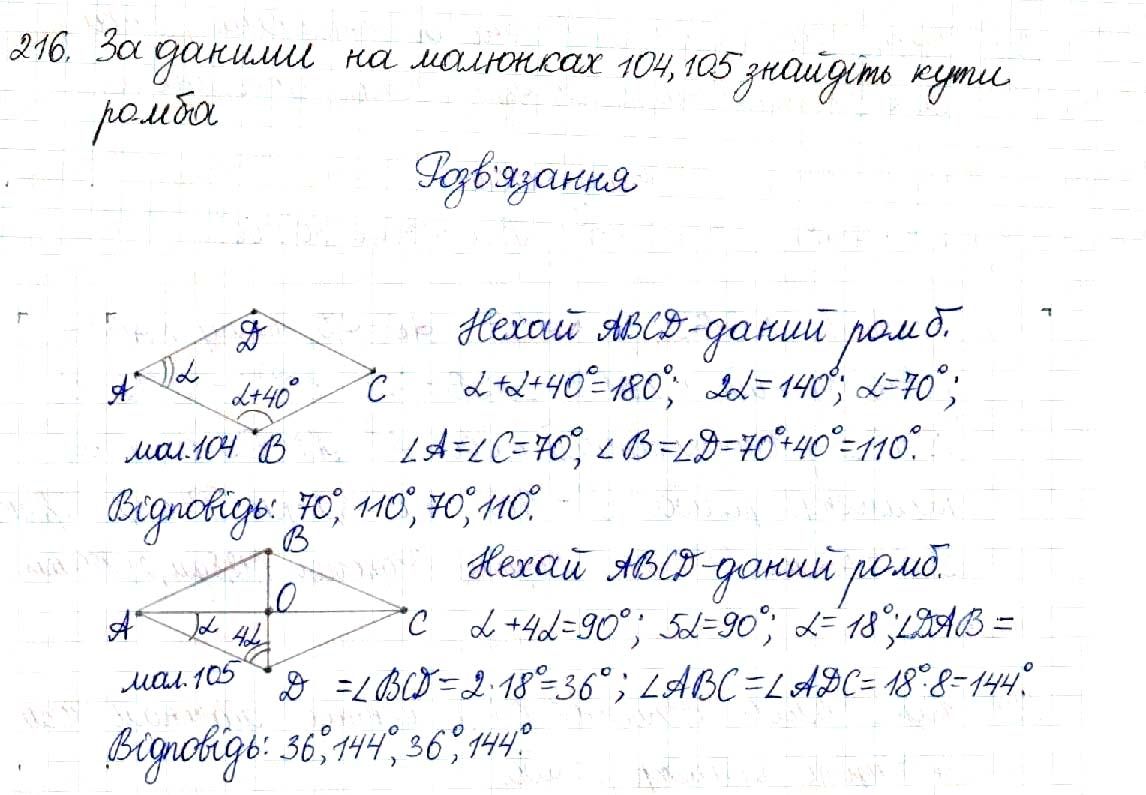 216. За даними на малюнках 104, 105 знайдіть кути
ромба
Розв'язання
D
A
α
α+40°
C
B
мал.104
Нехай ABCD-даний ромб.
α+α+40°=180°; 2α=140°; α=70°;
∠A=∠C=70°; ∠B=∠D=70°+40°=110°.
Відповідь: 70°, 110°, 70°, 110°.
B
O
A
α
4α
C
D
мал.105
Нехай ABCD-даний ромб.
α+4α=90°; 5α=90°; α=18°; ∠DAB=
=∠BCD=2·18°=36°; ∠ABC=∠ADC=18°·8=144°.
Відповідь: 36°, 144°, 36°, 144°.